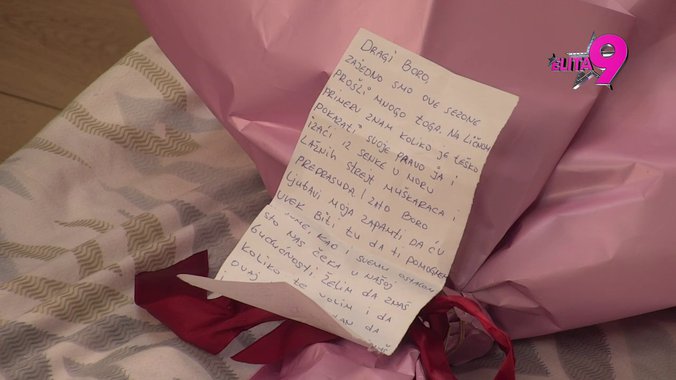 ELITA 9
DRAGI BORO,
ZAJEDNO SMO OVE SEZONE
PROŠLI MNOGO TOGA. NA LIČNOM
PRIMERU ZNAM KOLIKO JE TEŠKO
POKAZATI SVOJE PRAVO JA I
IZAĆI IZ SENKE U MORU
LAŽNIH STREJT MUŠKARACA I
PREDRASUDA. I ZATO BORO
LJUBAVI MOJA ZAPAMTI DA ĆU
UVEK BITI TU DA TI POMOGNEM
KAO I SVEMU OSTALOM
ŠTO NAS ČEKA U NAŠOJ
BUDUĆNOSTI. ŽELIM DA ZNAŠ
KOLIKO TE VOLIM I DA
OVAJ DA